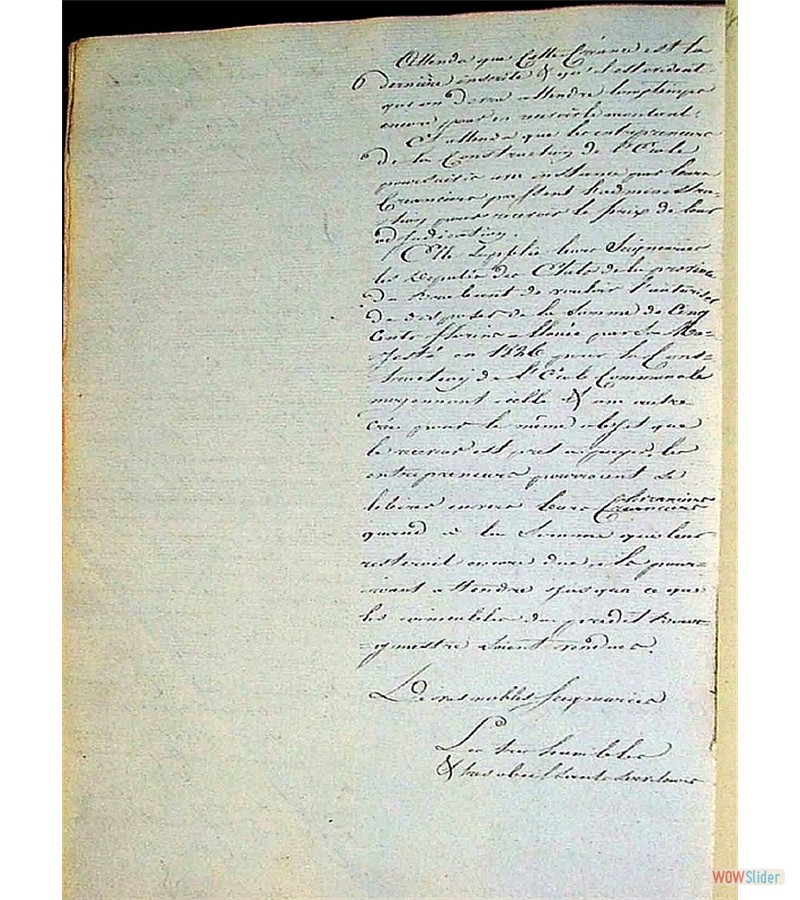 Attendu que Cette Créance est la
6 dernière inscrite & qu'il est evident
qu'on devra attendre longtemps
encore pour en recevoir le montant.
Et attendu que les entrepreneurs
6 de la Construction de l'Ecole
poursuivis en instance par leurs
Créanciers pressent l'administra-
tion pour recevoir le prix de leur
adjudication.
Elle supplie leurs Seigneuries
les Deputés des Etats de la province
du Brabant de vouloir l'autoriser
de disposer de la Somme de Cinq
Cents florins allouée par Sa Ma-
jesté en 1826 pour la Cons-
truction de l'Ecole Communale
moyennant celle & une autre
crée pour le même objet que
le receveur est pret a payer, les
entrepreneurs pourront se
liberer envers leurs Créanciers
quand à la Somme que leur
resteroit encore due, a la pour-
roient attendre jusqu'a ce que
les immeubles du predit Bourg-
-gmestre soient vendues.
De vos nobles Seigneuries
Les tres humbles
& tres obeissants Serviteurs
WOWSlider